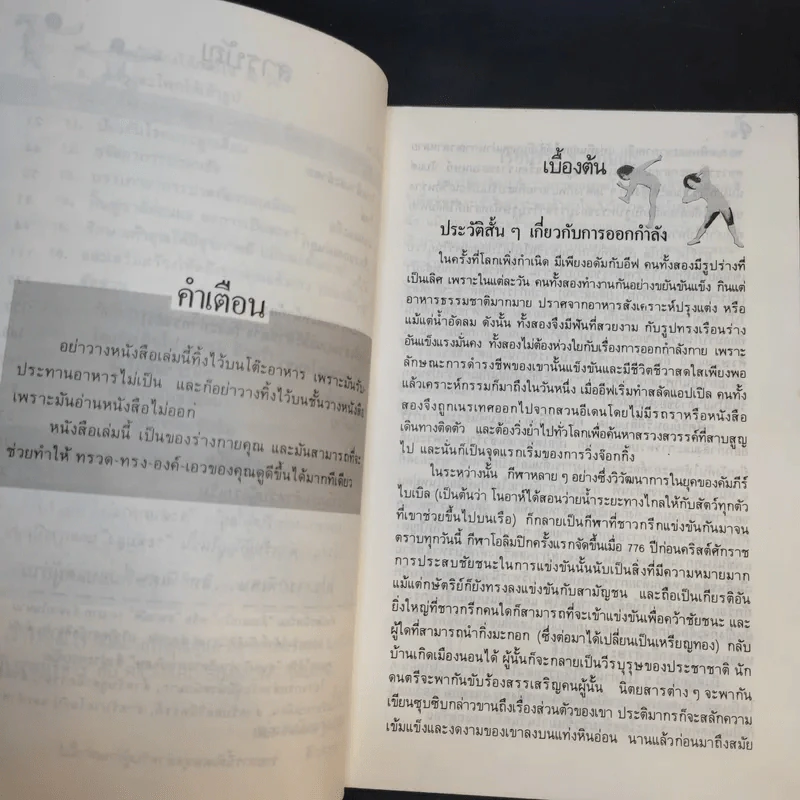 สารบัญ
คำเตือน
อย่าวางหนังสือเล่มนี้ทิ้งไว้บนโต๊ะอาหาร เพราะมันรับ
ประทานอาหารไม่เป็น และก็อย่าวางทิ้งไว้บนชั้นวางหนังสือ
เพราะมันอ่านหนังสือไม่ออก
หนังสือเล่มนี้ เป็นของร่างกายคุณ และมันสามารถที่จะ
ช่วยทำให้ ทรวด-ทรง-องค์-เอวของคุณดูดีขึ้นได้มากทีเดียว
เบื้องต้น
ประวัติสั้น ๆ เกี่ยวกับการออกกำลัง
ในครั้งที่โลกเพิ่งกำเนิด มีเพียงอดัมกับอีฟ คนทั้งสองมีรูปร่างที่
เป็นเลิศ เพราะในแต่ละวัน คนทั้งสองทำงานกันอย่างขยันขันแข็ง กินแต่
อาหารธรรมชาติมากมาย ปราศจากอาหารสังเคราะห์ปรุงแต่ง หรือ
แม้แต่น้ำอัดลม ดังนั้น ทั้งสองจึงมีฟันที่สวยงาม กับรูปทรงเรือนร่าง
อันแข็งแรงมั่นคง ทั้งสองไม่ต้องห่วงใยกับเรื่องการออกกำลังกาย เพราะ
ลักษณะการดำรงชีพของเขานั้นแข็งขันและมีชีวิตชีวาสดใสเพียงพอ
แล้วเคราะห์กรรมก็มาถึงในวันหนึ่ง เมื่ออีฟเริ่มทำสลัดแอปเปิล คนทั้ง
สองจึงถูกเนรเทศออกไปจากสวนอีเดนโดยไม่มีรถราหรือหนังสือ
เดินทางติดตัว และต้องวิ่งย่ำไปทั่วโลกเพื่อค้นหาสรวงสวรรค์ที่สาบสูญ
ไป และนั่นก็เป็นจุดแรกเริ่มของการวิ่งจ๊อกกิ้ง
ในระหว่างนั้น กีฬาหลาย ๆ อย่างซึ่งวิวัฒนาการในยุคของคัมภีร์
ไบเบิล (เป็นต้นว่า โนอาห์ได้สอนว่ายน้ำระยะทางไกลให้กับสัตว์ทุกตัว
ที่เขาช่วยขึ้นไปบนเรือ) ก็กลายเป็นกีฬาที่ชาวกรีกแข่งขันกันมาจน
ตราบทุกวันนี้ กีฬาโอลิมปิกครั้งแรกจัดขึ้นเมื่อ 776 ปีก่อนคริสต์ศักราช
การประสบชัยชนะในการแข่งขันนั้นนับเป็นสิ่งที่มีความหมายมาก
แม้แต่กษัตริย์ก็ยังทรงลงแข่งขันกับสามัญชน และถือเป็นเกียรติอัน
ยิ่งใหญ่ที่ชาวกรีกคนใดก็สามารถที่จะเข้าแข่งขันเพื่อคว้าชัยชนะ และ
ผู้ใดที่สามารถนำกิ่งมะกอก (ซึ่งต่อมาได้เปลี่ยนเป็นเหรียญทอง) กลับ
บ้านเกิดเมืองนอนได้ ผู้นั้นก็จะกลายเป็นวีรบุรุษของประชาชาติ นัก
ดนตรีจะพากันขับร้องสรรเสริญคนผู้นั้น นิตยสารต่าง ๆ จะพากัน
เขียนซุบซิบกล่าวขานถึงเรื่องส่วนตัวของเขา ประติมากรก็จะสลักความ
เข้มแข็งและงดงามของเขาลงบนแท่งหินอ่อน นานแล้วก่อนมาถึงสมัย